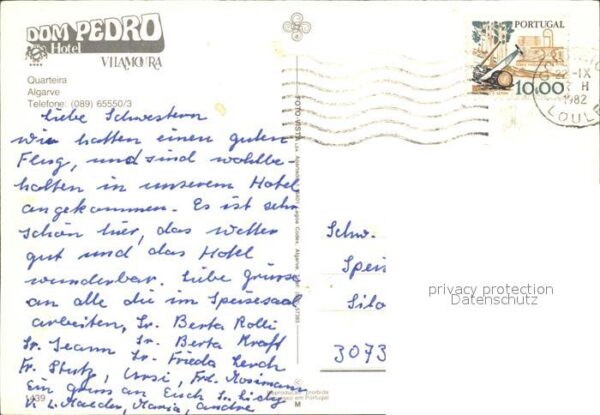 DOM PEDRO
Hotel
VILAMOURA
Quarteira
Algarve
Telefone: (089) 65550/3
Liebe Schwestern
wir hatten einen guten
Flug, und sind wohlbe-
halten in unserem Hotel
angekommen. Es ist sehr
schön hier, das Wetter
gut und das Hotel
wunderbar. Liebe Grüsse
an alle die im Speisesaal
arbeiten, Sr. Berta Rolli
Sr. Jeann Sr. Berta Kraft
Fr. Stutz, Sr. Frieda Lerch
Ursi, Frl. Mosimann
Ein Gruss an Euch Sr. Lidy
Maria, andré
1439
FOTO-VISTA
M
PORTUGAL
10.00
22-IX
1982
LOULÉ
Schw.
Speis
Silo
3073
privacy protection
Datenschutz